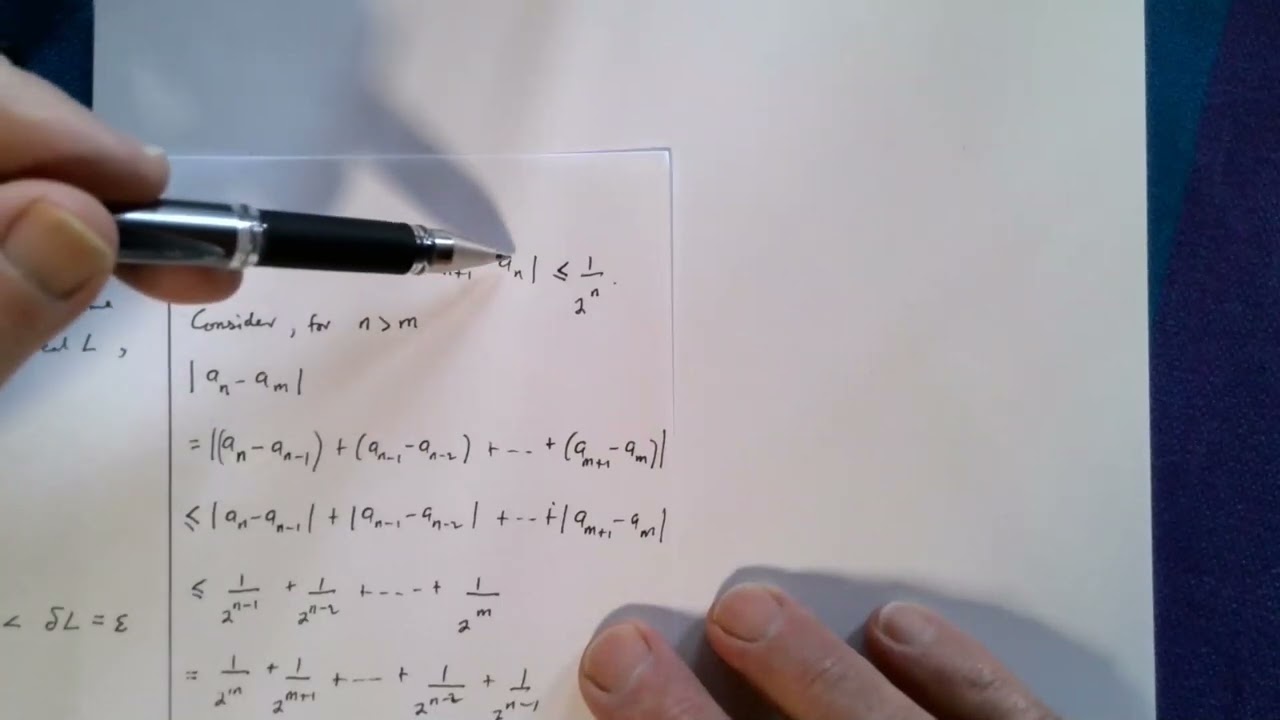 n+1 aₙ| ≤ 1/2ⁿ.
Consider, for n > m
L ,
|aₙ - aₘ|
= |(aₙ - aₙ₋₁) + (aₙ₋₁ - aₙ₋₂) + --- + (aₘ₊₁ - aₘ)|
≤ |aₙ - aₙ₋₁| + |aₙ₋₁ - aₙ₋₂| + --- + |aₘ₊₁ - aₘ|
≤ 1/2ⁿ⁻¹ + 1/2ⁿ⁻² + ---- + 1/2ᵐ
< δL = ε
= 1/2ᵐ + 1/2ᵐ⁺¹ + --- + 1/2ⁿ⁻² + 1/2ⁿ⁻¹